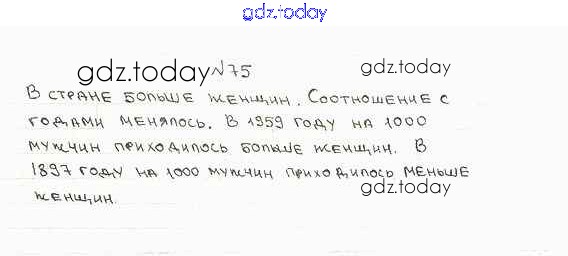 gdz.today
gdz.today №75 gdz.today
В стране больше женщин. Соотношение с
годами менялось. В 1959 году на 1000
мужчин приходилось больше женщин. В
1897 году на 1000 мужчин приходилось меньше
gdz.today
женщин.